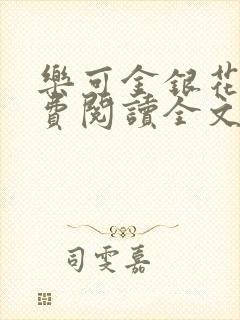 樂可金銀花
費閱讀全文
司雯嘉